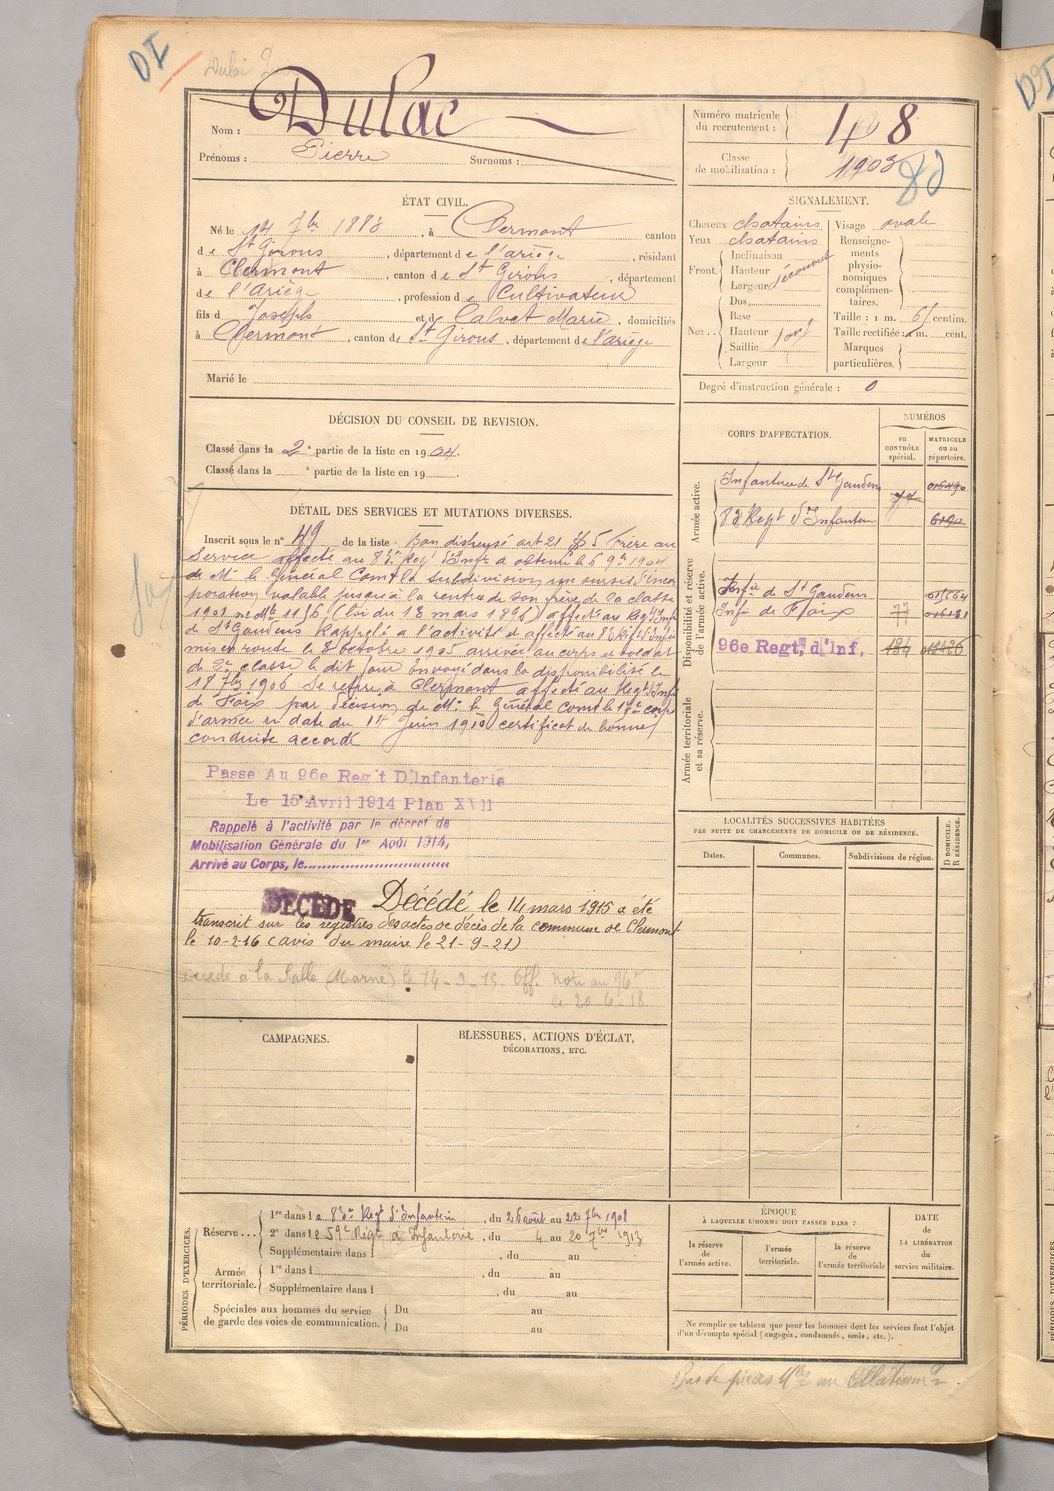 DI
Nom : Dulac
Prénoms : Pierre Surnoms :
Numéro matricule du recrutement : 48
Classe de mobilisation : 1903
ÉTAT CIVIL.
Né le 14 7bre 1883, à Clermont canton
de St Girons, département de l'ariège, résidant
à Clermont, canton de St Girons, département
de l'Ariège, profession de Cultivateur
fils de Joseph et de Calvet Marie, domiciliés
à Clermont, canton de St Girons, département de l'ariège
Marié le
SIGNALEMENT.
Cheveux chatains Visage ovale
Yeux chatains Renseigne-
ments
physio-
nomiques
complémen-
taires.
Front Inclinaison
Hauteur découvert
Largeur
Nez Dos
Base
Hauteur fort
Saillie
Largeur
Taille : 1 m. 61 centim.
Taille rectifiée : 1 m. cent.
Marques
particulières.
Degré d'instruction générale : 0
DÉCISION DU CONSEIL DE REVISION.
Classé dans la 2e partie de la liste en 1904.
Classé dans la e partie de la liste en 19
CORPS D'AFFECTATION.
NUMÉROS
au CONTRÔLE spécial.
MATRICULE ou au répertoire.
Armée active.
Infanterie de St Gaudens
83 Regt d'Infanterie
Disponibilité et réserve de l'armée active.
Infie de St Gaudens
Infie de Foix 77
96e Regt, d'Inf. 184
Armée territoriale et sa réserve.
DÉTAIL DES SERVICES ET MUTATIONS DIVERSES.
Inscrit sous le n° 49 de la liste. Bon dispensé art 21 § 5 frère au
Service affecté au 83e Regt d'Infie a obtenu le 5 9bre 1904
de Mr le Général Comt la Subdivision un sursis d'incor
poration valable jusqu'à la rentrée de son frère de la classe
1901 no Mle 1156 (loi du 13 mars 1896) affecté au Regt d'Inf
de St Gaudens Rappelé à l'activité et affecté au 83 Regt d'Infie
mis en route le 8 octobre 1905 arrivée au corps et soldat
de 2e classe le dit jour Envoyé dans la disponibilité le
18 7bre 1906 Se retire à Clermont affecté au Regt d'Inf
de Foix par décision de Mr le Général Comt le 17e corps
d'armée en date du 14 juin 1910 certificat de bonne
conduite accordé
Passe Au 96e Reg't D'Infanterie
Le 15 Avril 1914 Plan XVII
Rappelé à l'activité par le décret de
Mobilisation Générale du 1er Août 1914,
Arrivé au Corps, le
DÉCÉDÉ Décédé le 14 mars 1915 a été
transcrit sur les registres des actes de décès de la commune de Clermont
le 10-2-16 (avis du maire le 21-9-21)
décédé à la Salle (Marne) le 14-3-15. Off. Note au 96e
le 20.6.18
LOCALITÉS SUCCESSIVES HABITÉES
PAR SUITE DE CHANGEMENTS DE DOMICILE OU DE RÉSIDENCE.
Dates. Communes. Subdivisions de région.
D DOMICILE. R RÉSIDENCE.
CAMPAGNES.
BLESSURES, ACTIONS D'ÉCLAT,
DÉCORATIONS, ETC.
PÉRIODES D'EXERCICES.
Réserve... 1re dans le 83e Regt d'Infanterie, du 26 août au 22 7bre 1908
2e dans le 59e Régt d'Infanterie, du 4 au 20 7bre 1913
Supplémentaire dans l , du au
Armée territoriale. 1re dans l , du au
Supplémentaire dans l , du au
Spéciales aux hommes du service
de garde des voies de communication. Du au
Du au
ÉPOQUE
À LAQUELLE L'HOMME DOIT PASSER DANS :
la réserve de l'armée active.
l'armée territoriale.
la réserve de l'armée territoriale
DATE
de
LA LIBÉRATION
du
service militaire.
Ne remplir ce tableau que pour les hommes dont les services font l'objet
d'un décompte spécial (engagés, condamnés, omis, etc.).
Pas de pièces